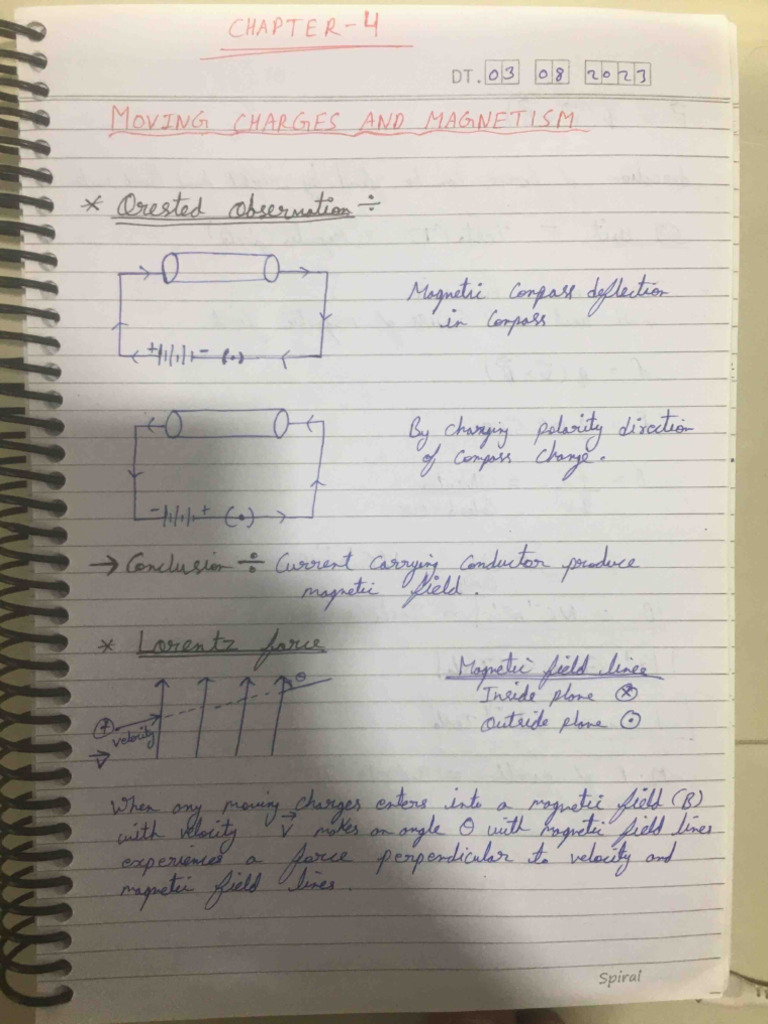 CHAPTER-4
DT. 03 08 2023
MOVING CHARGES AND MAGNETISM
* Orested Observation ÷
Magnetic Compass deflection
in Compass
+ -
(•)
By changing polarity direction
of compass change.
- +
(•)
→ Conclusion ÷ Current carrying conductor produce
magnetic field.
* Lorentz force
Magnetic field lines
Inside plane ⊗
Outside plane ⊙
θ
+
velocity
V
When any moving charges enters into a magnetic field (B)
with velocity V makes an angle θ with magnetic field lines
experiences a force perpendicular to velocity and
magnetic field lines.
Spiral